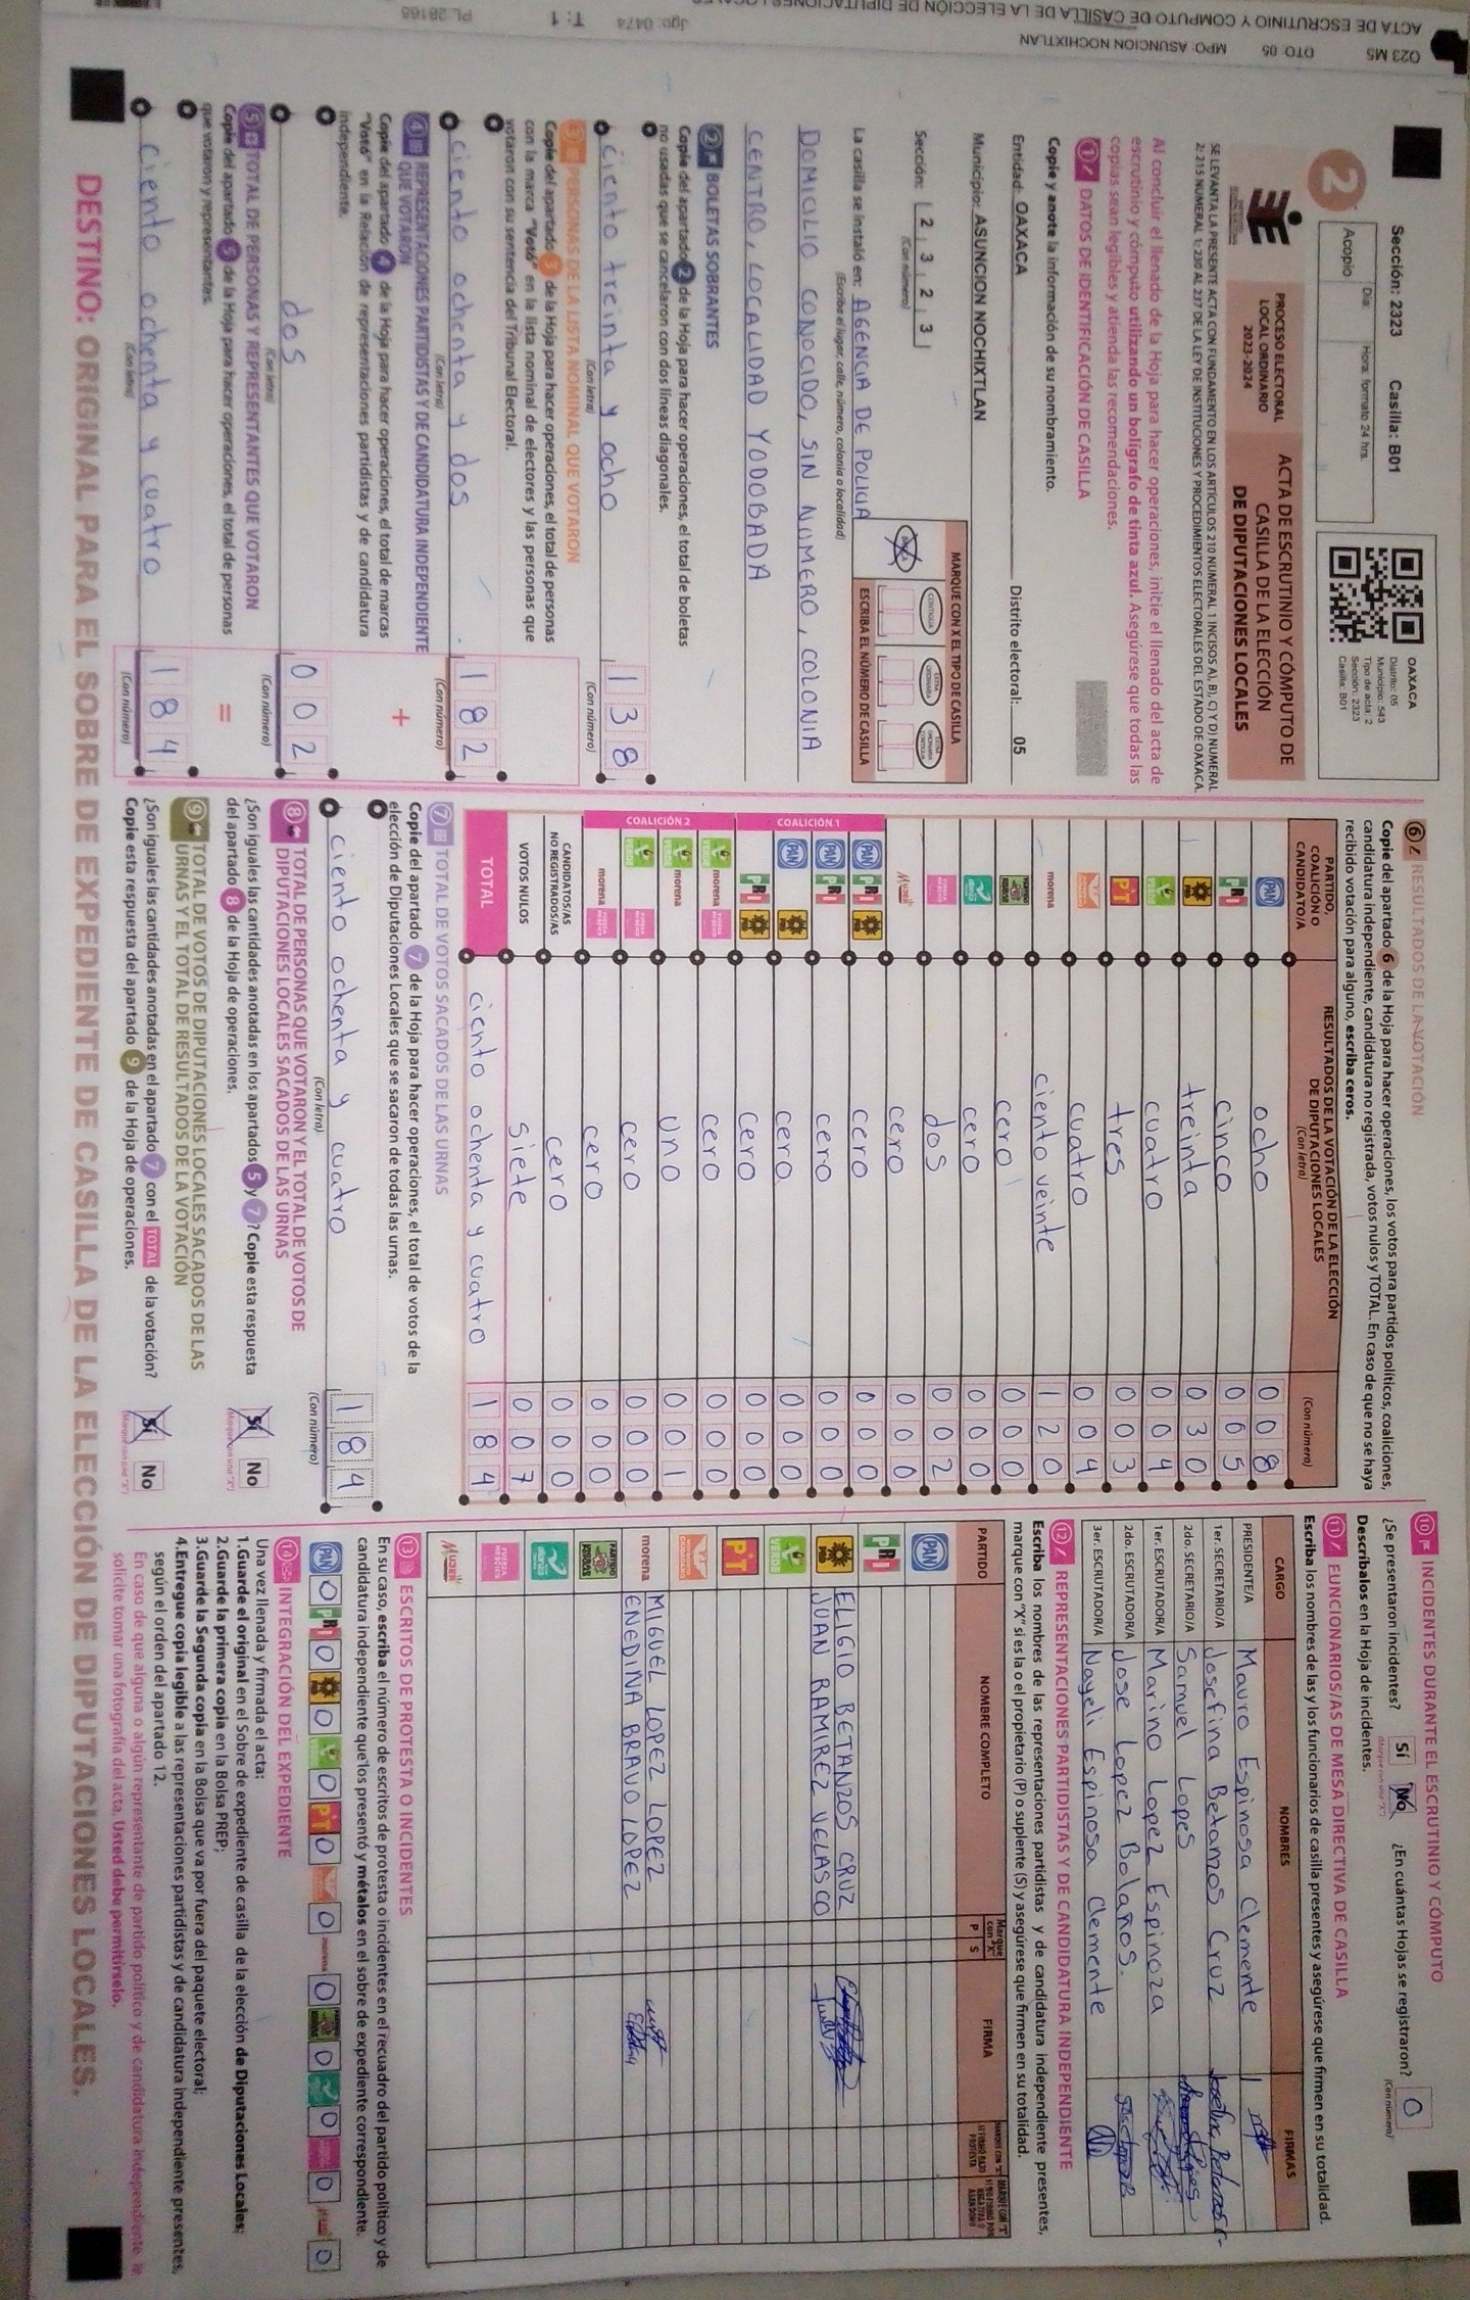 Q23 M5 DTO: 05 MPO: ASUNCION NOCHIXTLAN
ACTA DE ESCRUTINIO Y CÓMPUTO DE CASILLA DE LA ELECCIÓN DE DIPUTACIONES LOCALES
Jgo: 0474 T: 1
Sección: 2323 Casilla: B01
Día: Hora: formato 24 hrs.
Acopio
OAXACA
Distrito: 05
Municipio: 543
Tipo de acta: 2
Sección: 2323
Casilla: B01
2
PROCESO ELECTORAL
LOCAL ORDINARIO
2023-2024
ACTA DE ESCRUTINIO Y CÓMPUTO DE
CASILLA DE LA ELECCIÓN
DE DIPUTACIONES LOCALES
SE LEVANTA LA PRESENTE ACTA CON FUNDAMENTO EN LOS ARTÍCULOS 210 NUMERAL 1 INCISOS A), B), C) Y D) NUMERAL
2; 215 NUMERAL 1; 230 AL 237 DE LA LEY DE INSTITUCIONES Y PROCEDIMIENTOS ELECTORALES DEL ESTADO DE OAXACA.
Al concluir el llenado de la Hoja para hacer operaciones, inicie el llenado del acta de
escrutinio y cómputo utilizando un bolígrafo de tinta azul. Asegúrese que todas las
copias sean legibles y atienda las recomendaciones.
1 DATOS DE IDENTIFICACIÓN DE CASILLA
Copie y anote la información de su nombramiento.
Entidad: OAXACA Distrito electoral: 05
Municipio: ASUNCION NOCHIXTLAN
Sección: 2 3 2 3
(Con número)
MARQUE CON X EL TIPO DE CASILLA
ESCRIBA EL NÚMERO DE CASILLA
La casilla se instaló en: AGENCIA DE POLICIA
(Escriba el lugar, calle, número, colonia o localidad)
DOMICILIO CONOCIDO, SIN NUMERO, COLONIA
CENTRO, LOCALIDAD YODOBADA
2 BOLETAS SOBRANTES
Copie del apartado 2 de la Hoja para hacer operaciones, el total de boletas
no usadas que se cancelaron con dos líneas diagonales.
ciento treinta y ocho 138
(Con letra) (Con número)
3 PERSONAS DE LA LISTA NOMINAL QUE VOTARON
Copie del apartado 3 de la Hoja para hacer operaciones, el total de personas
con la marca "Votó" en la lista nominal de electores y las personas que
votaron con su sentencia del Tribunal Electoral.
ciento ochenta y dos 182
(Con letra) (Con número)
+
4 REPRESENTACIONES PARTIDISTAS Y DE CANDIDATURA INDEPENDIENTE
QUE VOTARON
Copie del apartado 4 de la Hoja para hacer operaciones, el total de marcas
"Votó" en la Relación de representaciones partidistas y de candidatura
independiente.
dos 002
(Con letra) (Con número)
=
5 TOTAL DE PERSONAS Y REPRESENTANTES QUE VOTARON
Copie del apartado 5 de la Hoja para hacer operaciones, el total de personas
que votaron y representantes.
ciento ochenta y cuatro 184
(Con letra) (Con número)
6 RESULTADOS DE LA VOTACIÓN
Copie del apartado 6 de la Hoja para hacer operaciones, los votos para partidos políticos, coaliciones,
candidatura independiente, candidatura no registrada, votos nulos y TOTAL. En caso de que no se haya
recibido votación para alguno, escriba ceros.
PARTIDO, COALICIÓN O CANDIDATO/A
RESULTADOS DE LA VOTACIÓN DE LA ELECCIÓN DE DIPUTACIONES LOCALES
(Con letra) (Con número)
PAN ocho 008
PRI cinco 005
PRD treinta 030
VERDE cuatro 004
PT tres 003
cuatro 004
morena ciento veinte 120
cero 000
cero 000
dos 002
Mujer cero 000
COALICIÓN 1
PAN PRI PRD cero 000
PAN PRI cero 000
PAN PRD cero 000
PRI PRD cero 000
COALICIÓN 2
VERDE morena cero 000
VERDE morena uno 001
VERDE cero 000
morena cero 000
CANDIDATOS/AS NO REGISTRADOS/AS cero 000
VOTOS NULOS siete 007
TOTAL ciento ochenta y cuatro 184
7 TOTAL DE VOTOS SACADOS DE LAS URNAS
Copie del apartado 7 de la Hoja para hacer operaciones, el total de votos de la
elección de Diputaciones Locales que se sacaron de todas las urnas.
ciento ochenta y cuatro 184
(Con letra) (Con número)
8 TOTAL DE PERSONAS QUE VOTARON Y EL TOTAL DE VOTOS DE
DIPUTACIONES LOCALES SACADOS DE LAS URNAS
¿Son iguales las cantidades anotadas en los apartados 5 y 7? Copie esta respuesta
del apartado 8 de la Hoja de operaciones.
Sí No
9 TOTAL DE VOTOS DE DIPUTACIONES LOCALES SACADOS DE LAS
URNAS Y EL TOTAL DE RESULTADOS DE LA VOTACIÓN
¿Son iguales las cantidades anotadas en el apartado 7 con el TOTAL de la votación?
Copie esta respuesta del apartado 9 de la Hoja de operaciones.
Sí No
10 INCIDENTES DURANTE EL ESCRUTINIO Y CÓMPUTO
¿Se presentaron incidentes? Sí No ¿En cuántas Hojas se registraron? 0
(Con número)
Descríbalos en la Hoja de incidentes.
11 FUNCIONARIOS/AS DE MESA DIRECTIVA DE CASILLA
Escriba los nombres de las y los funcionarios de casilla presentes y asegúrese que firmen en su totalidad.
CARGO NOMBRES FIRMAS
PRESIDENTE/A Mauro Espinosa Clemente
1er. SECRETARIO/A Josefina Betanzos Cruz
2do. SECRETARIO/A Samuel Lopes
1er. ESCRUTADOR/A Marino Lopez Espinoza
2do. ESCRUTADOR/A Jose Lopez Bolaños.
3er. ESCRUTADOR/A Nayeli Espinosa Clemente
12 REPRESENTACIONES PARTIDISTAS Y DE CANDIDATURA INDEPENDIENTE
Escriba los nombres de las representaciones partidistas y de candidatura independiente presentes,
marque con "X" si es la o el propietario (P) o suplente (S) y asegúrese que firmen en su totalidad.
PARTIDO NOMBRE COMPLETO Marque con "X" P S FIRMA
PAN
PRI
PRD ELIGIO BETANZOS CRUZ
JUAN RAMIREZ VELASCO
VERDE
PT
morena MIGUEL LOPEZ LOPEZ
ENEDINA BRAVO LOPEZ
Mujer
13 ESCRITOS DE PROTESTA O INCIDENTES
En su caso, escriba el número de escritos de protesta o incidentes en el recuadro del partido político y de
candidatura independiente que los presentó y métalos en el sobre de expediente correspondiente.
PAN 0 PRI 0 PRD 0 VERDE 0 PT 0 0 morena 0 0 0 0 0
14 INTEGRACIÓN DEL EXPEDIENTE
Una vez llenada y firmada el acta:
1.Guarde el original en el Sobre de expediente de casilla de la elección de Diputaciones Locales;
2.Guarde la primera copia en la Bolsa PREP;
3.Guarde la Segunda copia en la Bolsa que va por fuera del paquete electoral;
4.Entregue copia legible a las representaciones partidistas y de candidatura independiente presentes,
según el orden del apartado 12.
En caso de que alguna o algún representante de partido político y de candidatura independiente le
solicite tomar una fotografía del acta, Usted debe permitírselo.
DESTINO: ORIGINAL PARA EL SOBRE DE EXPEDIENTE DE CASILLA DE LA ELECCIÓN DE DIPUTACIONES LOCALES.